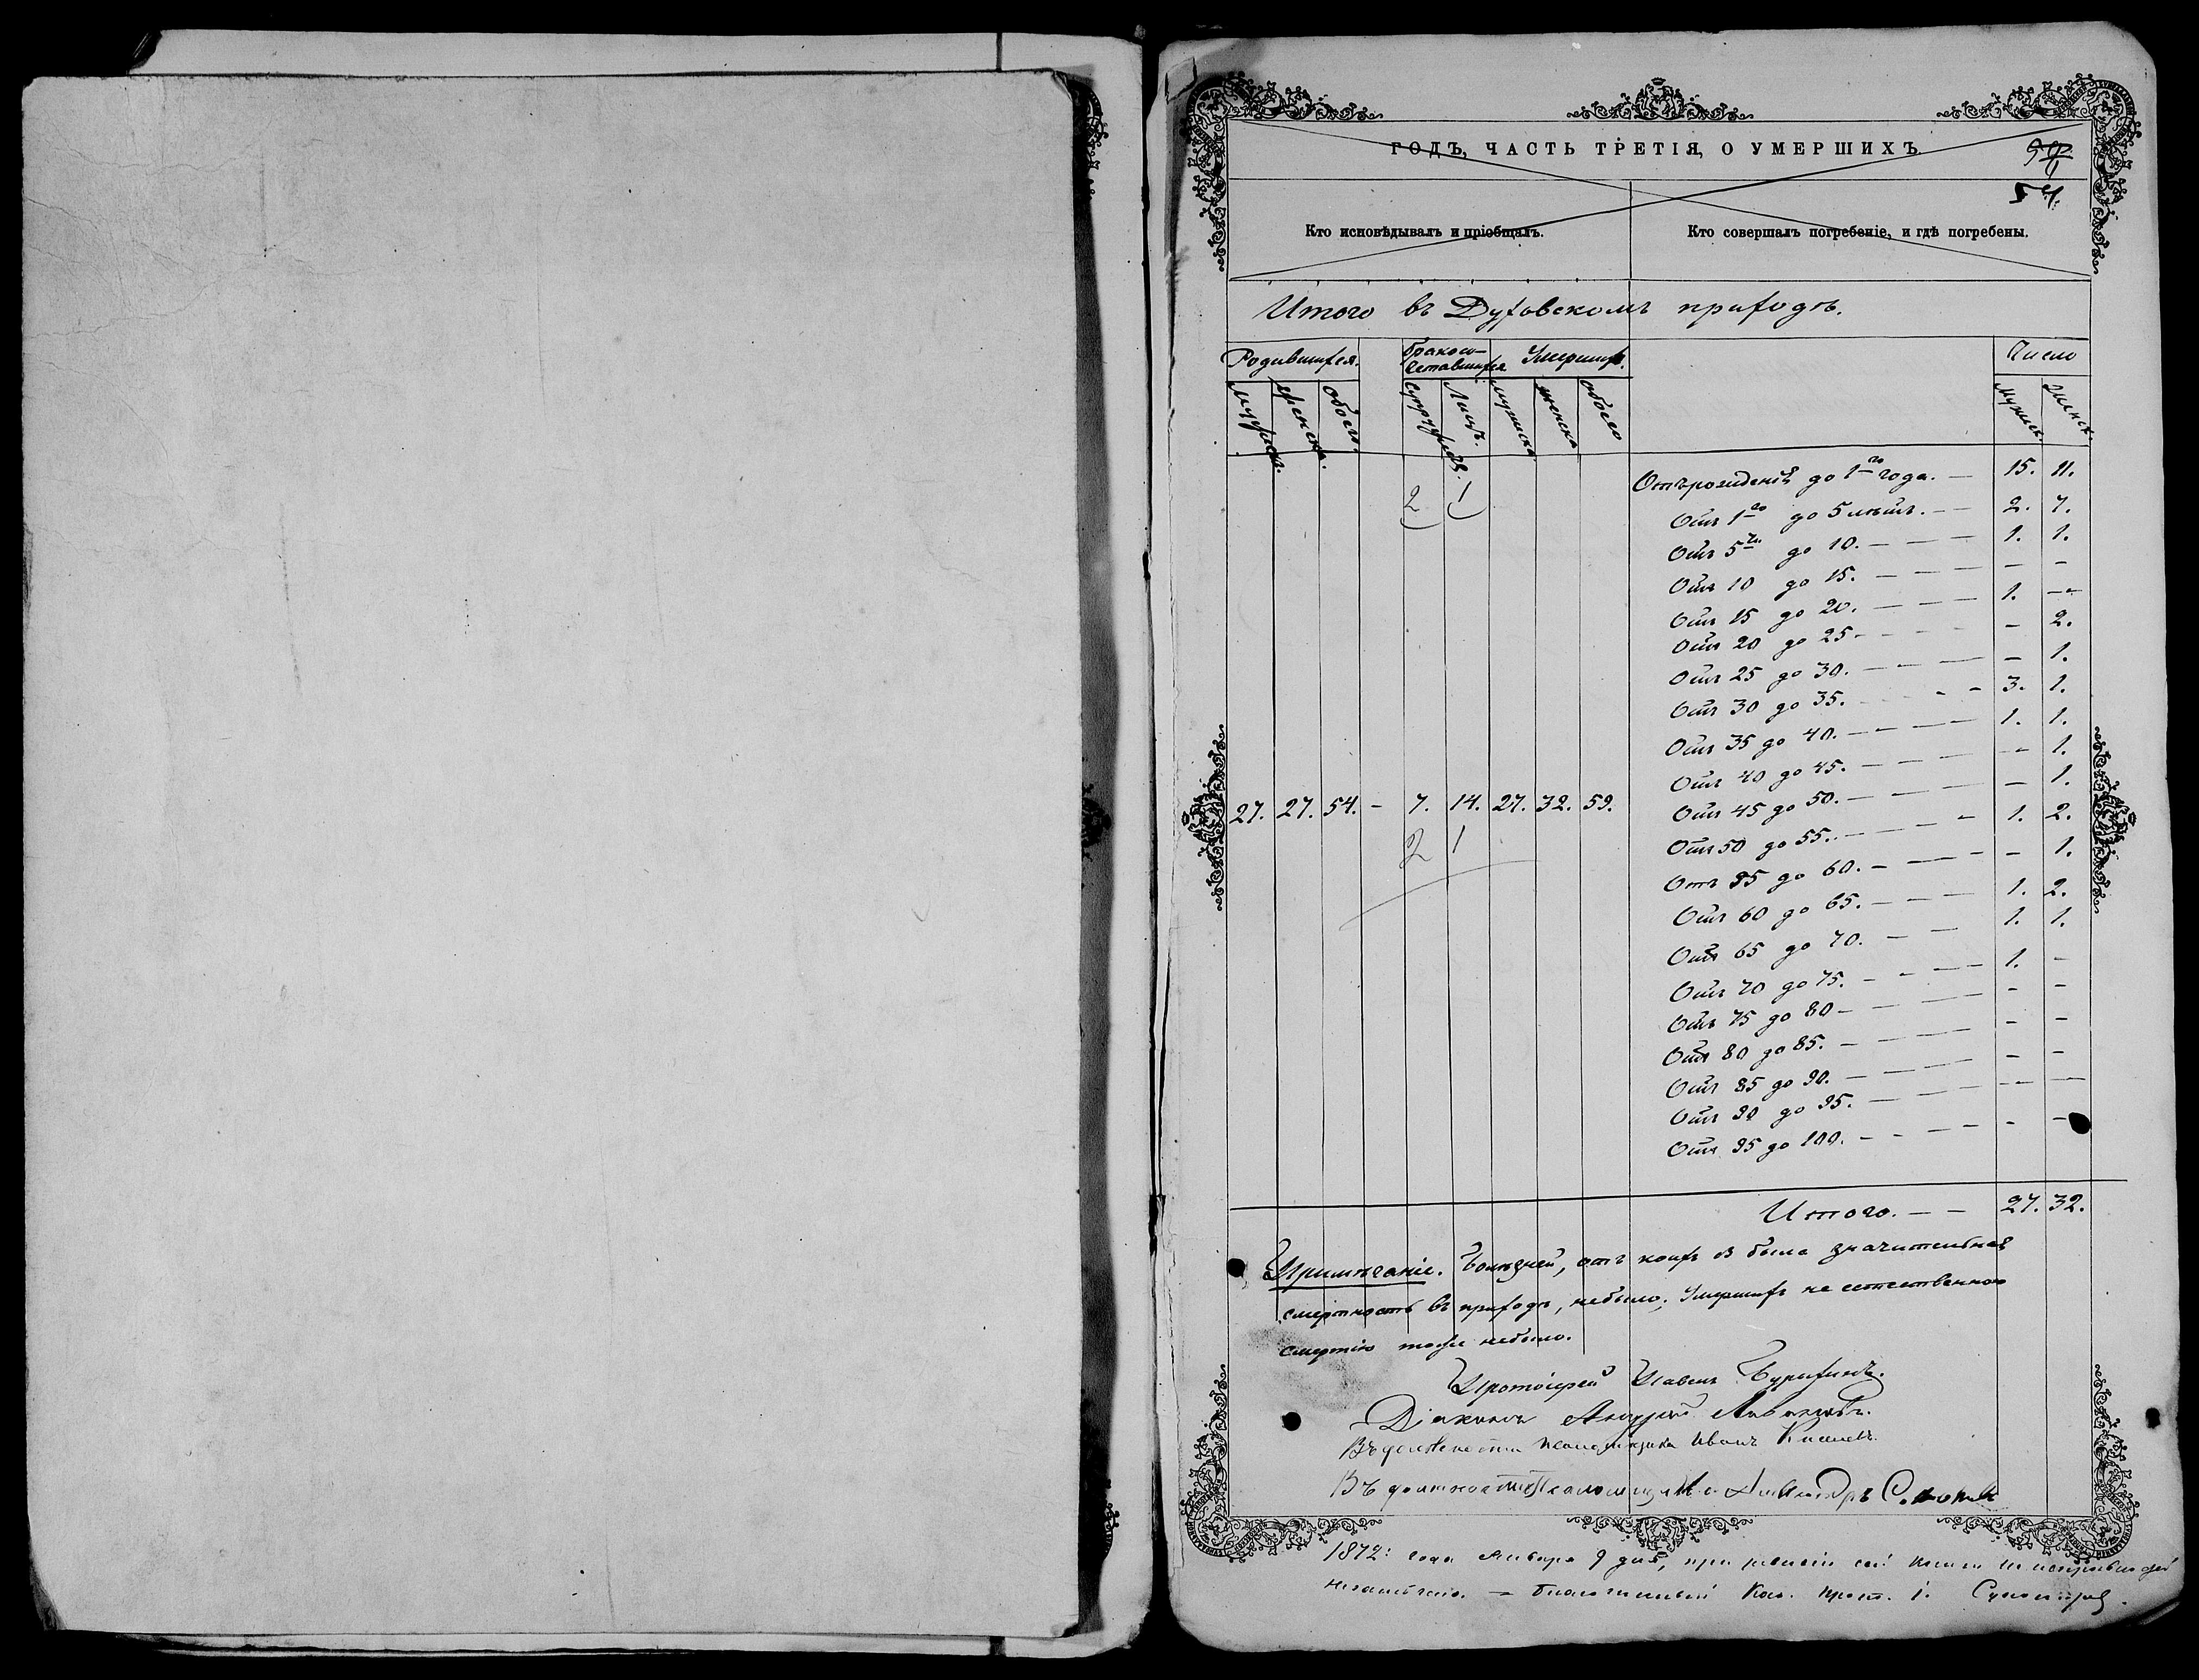 ГОДЪ, ЧАСТЬ ТРЕТІЯ, О УМЕРШИХЪ.
54.
Кто исповѣдывалъ и пріобщалъ.
Кто совершалъ погребеніе, и гдѣ погребены.
Итого въ Духовскомъ приходѣ.
Родившихся. Бракосочетавшихся Умершихъ. Число
мужск. женск. обоего Супружествъ. Лицъ. мужска женска обоего Мужск. Женск.
2 1
Отъ рожденія до 1го года. — 15. 11.
Отъ 1го до 5 лѣтъ. — — 2. 7.
Отъ 5ти до 10. — — — 1. 1.
Отъ 10 до 15. — — — – –
Отъ 15 до 20. — — — 1. —
Отъ 20 до 25 – – – – – 2.
Отъ 25 до 30. — — — – 1.
Отъ 30 до 35. – – 3. 1.
Отъ 35 до 40. — — — 1. 1.
Отъ 40 до 45. — — — – 1.
27. 27. 54. – 7. 14. 27. 32. 59.
Отъ 45 до 50. — — — – 1.
2 1
Отъ 50 до 55. — — – 1. 2.
Отъ 55 до 60. — — — – 1.
Отъ 60 до 65. — — — 1. 2.
Отъ 65 до 70. — — 1. 1.
Отъ 70 до 75. — — — 1. –
Отъ 75 до 80 — — — – –
Отъ 80 до 85. — — — – –
Отъ 85 до 90. — — — – –
Отъ 90 до 95. — — — – —
Отъ 95 до 100. — — — – –
Итого. — — 27. 32.
Примѣчаніе. Болѣзней, отъ коихъ бъ была значительная
смертность въ приходѣ, небыло; Умершихъ не естественною
смертію тоже небыло.
Протоіерей Павелъ
Діаконъ Андрей
Въ должности псаломщика Иванъ
Въ должности Псаломщика Александръ
1872: года Января 9 дня, при ревизіи сей книги
незамѣчено. — Благочинный Прот. І.